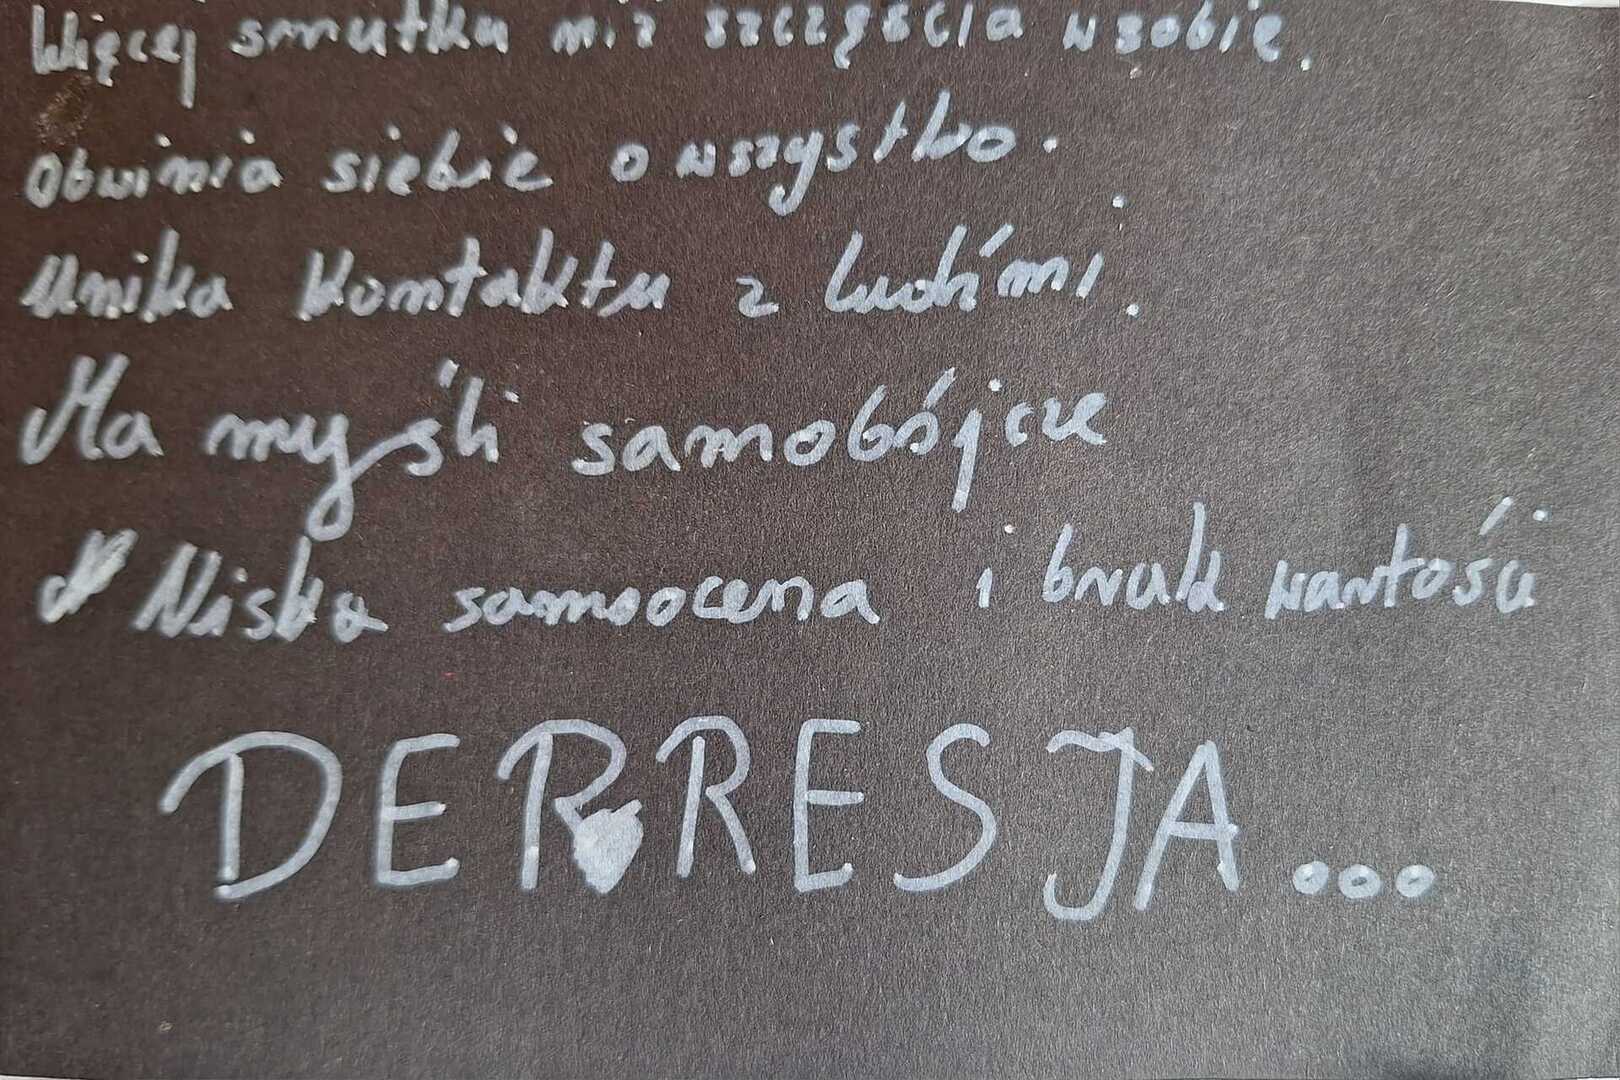 Więcej smutku niż szczęścia w sobie.
Obwinia siebie o wszystko.
Unika kontaktu z ludźmi.
Ma myśli samobójcze
Niska samoocena i brak wartości
DEPRESJA...